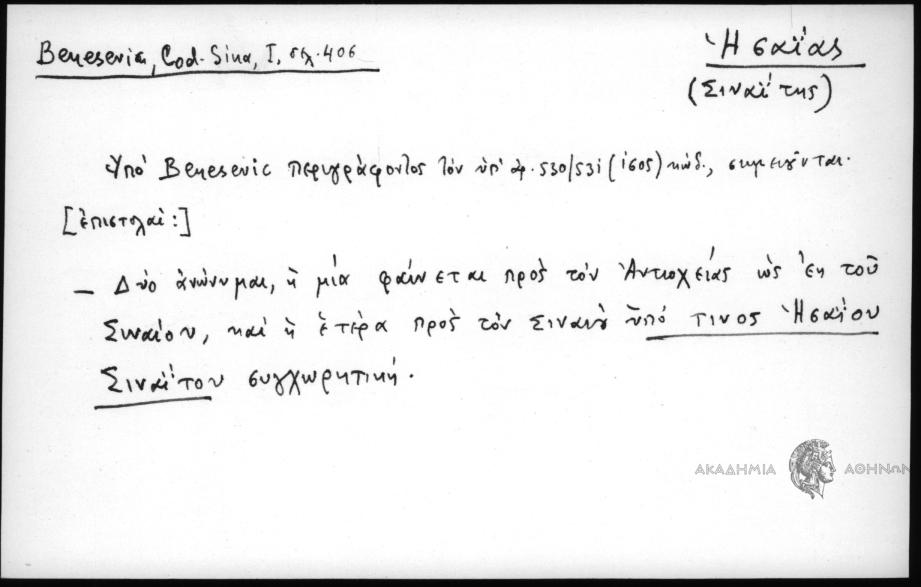 Benesevic, Cod. Sina, I, σλ. 406
Ἠσαΐας
(Σιναΐτης)
Ὑπό Benesevic περιγράφοντος τόν ὑπ' ἀρ. 530/531 (ἴσος) κώδ., σημειοῦνται.
[ἐπιστολαί:]
— Δύο ἀνώνυμαι, ἡ μία φαίνεται πρὸς τόν Ἀντιοχείας ὡς ἐκ τοῦ
Σιναίου, καί ἡ ἑτέρα πρὸς τόν Σιναίου ὑπό τινος Ἠσαΐου
Σιναΐτου συγχωρητική.
ΑΚΑΔΗΜΙΑ ΑΘΗΝΩΝ